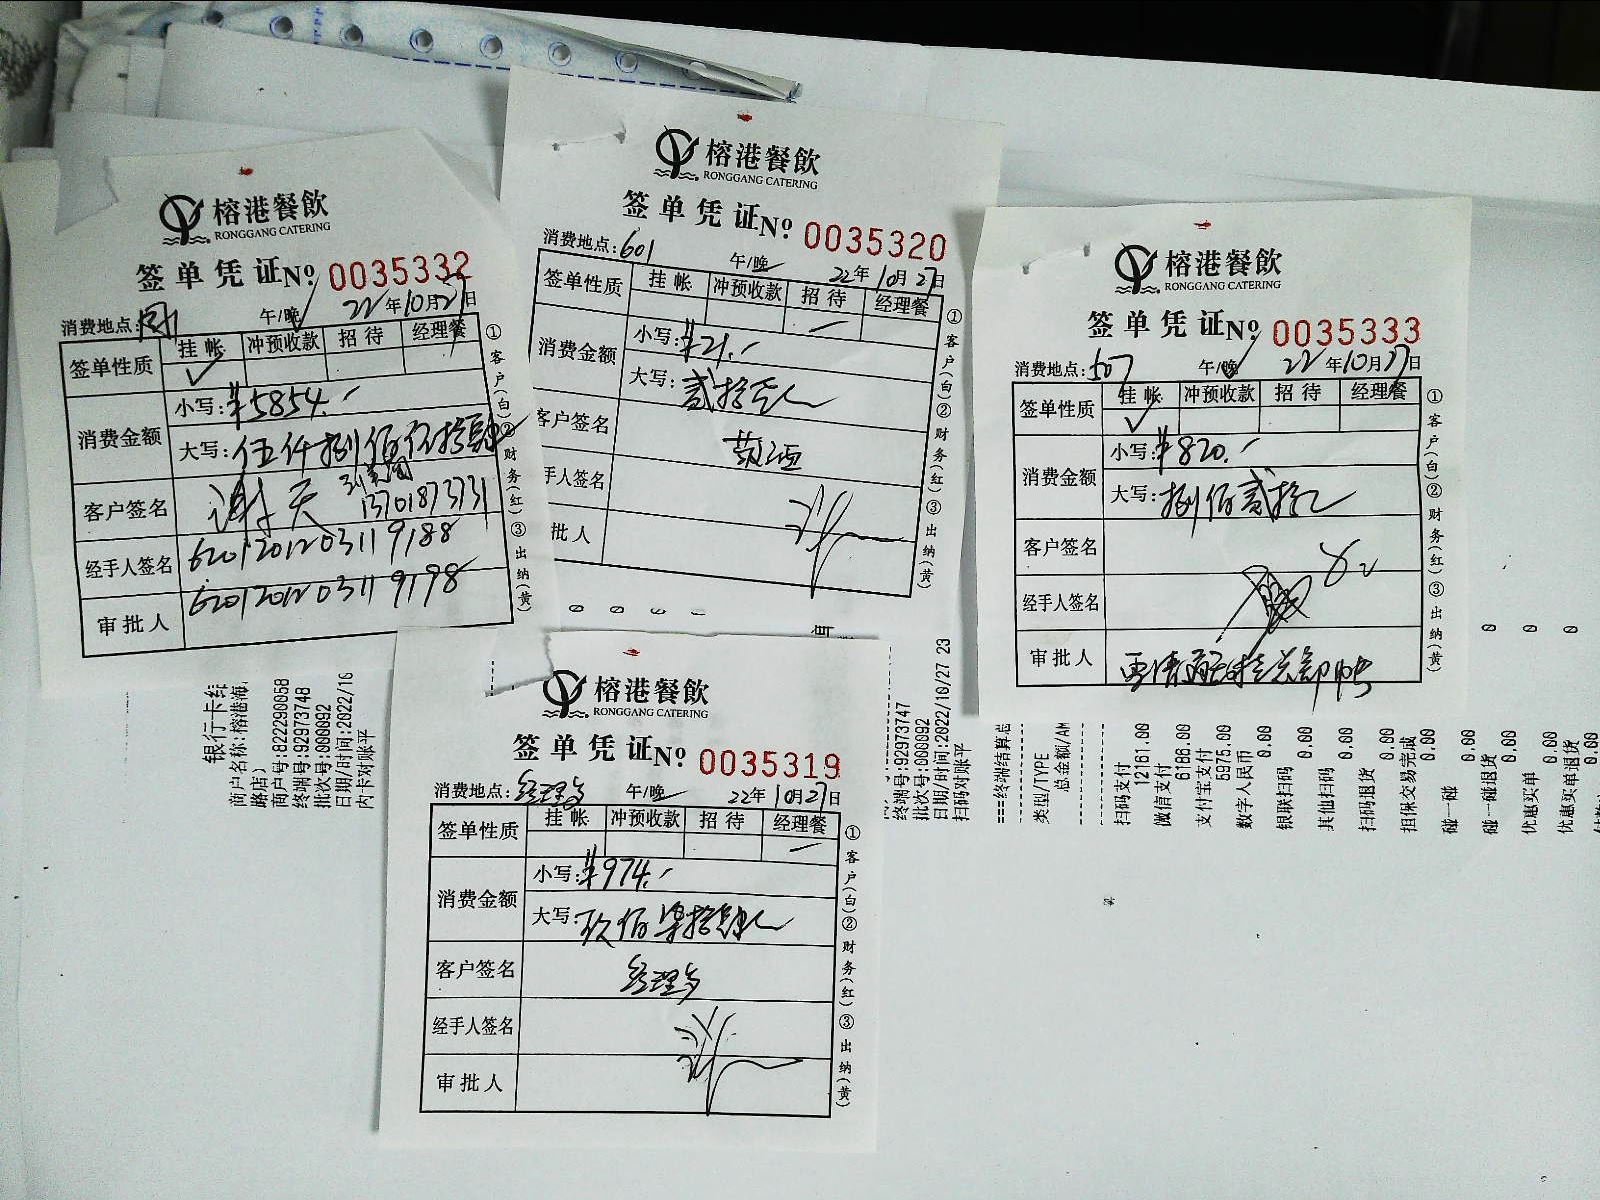 榕港餐飲
RONGGANG CATERING
签单凭证№ 0035332
消费地点: 午/晚 22年10月27日
签单性质 挂帐 冲预收款 招待 经理餐
✓
消费金额
小写:¥5854.-
大写:伍仟捌佰伍拾肆
客户签名 谢天 13701873731
经手人签名 6201201203119188
审批人 6201201203119198
①客户(白)②财务(红)③出纳(黄)
榕港餐飲
RONGGANG CATERING
签单凭证№ 0035320
消费地点:601 午/晚 22年10月27日
签单性质 挂帐 冲预收款 招待 经理餐
消费金额
小写:¥21.-
大写:贰拾壹元
客户签名
手人签名
批人
①客户(白)②财务(红)③出纳(黄)
榕港餐飲
RONGGANG CATERING
签单凭证№ 0035333
消费地点:507 午/晚 22年10月27日
签单性质 挂帐 冲预收款 招待 经理餐
✓
消费金额
小写:¥820.-
大写:捌佰贰拾元
客户签名
经手人签名
审批人
①客户(白)②财务(红)③出纳(黄)
榕港餐飲
RONGGANG CATERING
签单凭证№ 0035319
消费地点:经理餐 午/晚 22年10月27日
签单性质 挂帐 冲预收款 招待 经理餐
消费金额
小写:¥974.-
大写:玖佰柒拾肆元
客户签名 经理餐
经手人签名
审批人
①客户(白)②财务(红)③出纳(黄)
银行卡结
商户名称:榕港海
路店)
商户号:822290058
终端号:92973748
批次号:000092
日期/时间:2022/10
内卡对账平
终端号:92973747
批次号:000092
日期/时间:2022/10/27 23
扫码对账平
===终端结算总
类型/TYPE
总金额/AM
扫码支付
12161.00
微信支付
6186.00
支付宝支付
5975.00
数字人民币
0.00
银联扫码
0.00
其他扫码
0.00
扫码退货
0.00
担保交易完成
0.00
碰一碰
0.00
碰一碰退货
0.00
优惠买单
0.00
优惠买单退货
0.00